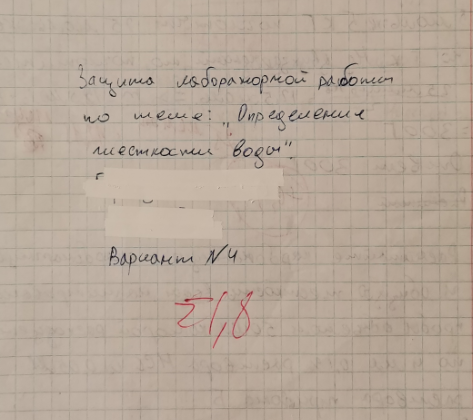 Защита лабораторной работы
по теме: „Определение
жесткости воды".
Вариант №4
Σ1,8